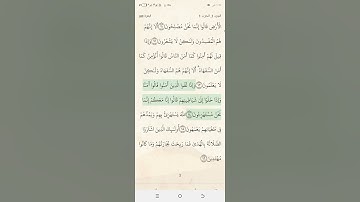 الأَرْضِ قَالُوا إِنَّمَا نَحْنُ مُصْلِحُونَ ۝ أَلَا إِنَّهُمْ
هُمُ الْمُفْسِدُونَ وَلَٰكِنْ لَا يَشْعُرُونَ ۝ وَإِذَا
قِيلَ لَهُمْ آمِنُوا كَمَا آمَنَ النَّاسُ قَالُوا أَنُؤْمِنُ كَمَا
آمَنَ السُّفَهَاءُ أَلَا إِنَّهُمْ هُمُ السُّفَهَاءُ وَلَٰكِنْ
لَا يَعْلَمُونَ ۝ وَإِذَا لَقُوا الَّذِينَ آمَنُوا قَالُوا آمَنَّا
وَإِذَا خَلَوْا إِلَىٰ شَيَاطِينِهِمْ قَالُوا إِنَّا مَعَكُمْ إِنَّمَا
نَحْنُ مُسْتَهْزِئُونَ ۝ اللَّهُ يَسْتَهْزِئُ بِهِمْ وَيَمُدُّهُمْ
فِي طُغْيَانِهِمْ يَعْمَهُونَ ۝ أُولَٰئِكَ الَّذِينَ اشْتَرَوُا
الضَّلَالَةَ بِالْهُدَىٰ فَمَا رَبِحَتْ تِجَارَتُهُمْ وَمَا كَانُوا
مُهْتَدِينَ ۝